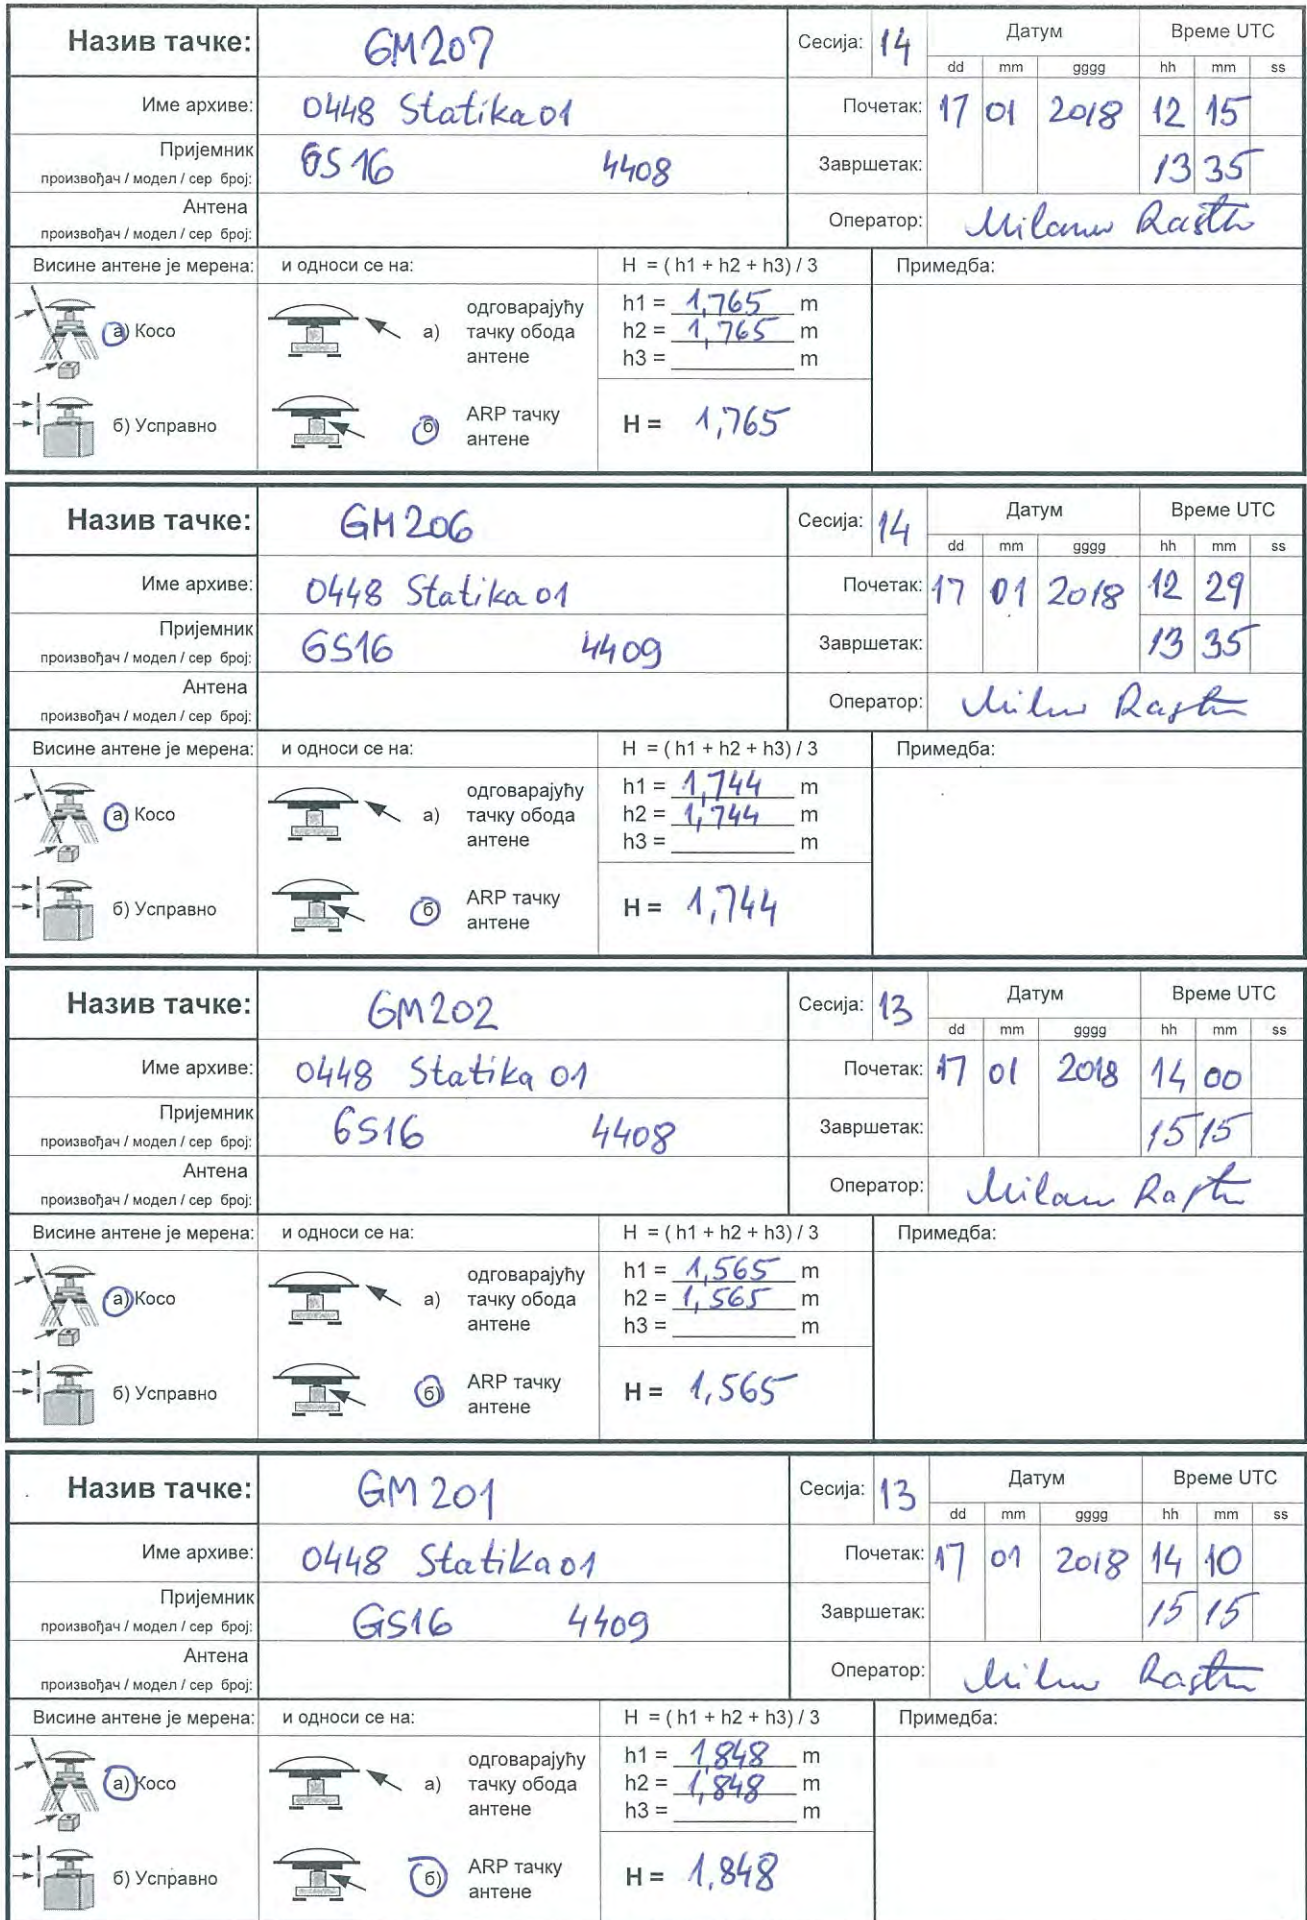 Назив тачке: GM207 Сесија: 14 Датум Време UTC
dd mm gggg hh mm ss
Име архиве: 0448 Statika 01 Почетак: 17 01 2018 12 15
Пријемник
произвођач / модел / сер број: GS16 4408 Завршетак: 13 35
Антена
произвођач / модел / сер број: Оператор:
Висине антене је мерена: и односи се на: H = ( h1 + h2 + h3) / 3 Примедба:
а) Косо а) одговарајућу тачку обода антене
h1 = 1,765 m
h2 = 1,765 m
h3 = m
б) Усправно б) ARP тачку антене H = 1,765
Назив тачке: GM206 Сесија: 14 Датум Време UTC
dd mm gggg hh mm ss
Име архиве: 0448 Statika 01 Почетак: 17 01 2018 12 29
Пријемник
произвођач / модел / сер број: GS16 4409 Завршетак: 13 35
Антена
произвођач / модел / сер број: Оператор:
Висине антене је мерена: и односи се на: H = ( h1 + h2 + h3) / 3 Примедба:
а) Косо а) одговарајућу тачку обода антене
h1 = 1,744 m
h2 = 1,744 m
h3 = m
б) Усправно б) ARP тачку антене H = 1,744
Назив тачке: GM202 Сесија: 13 Датум Време UTC
dd mm gggg hh mm ss
Име архиве: 0448 Statika 01 Почетак: 17 01 2018 14 00
Пријемник
произвођач / модел / сер број: GS16 4408 Завршетак: 15 15
Антена
произвођач / модел / сер број: Оператор: Milan
Висине антене је мерена: и односи се на: H = ( h1 + h2 + h3) / 3 Примедба:
а) Косо а) одговарајућу тачку обода антене
h1 = 1,565 m
h2 = 1,565 m
h3 = m
б) Усправно б) ARP тачку антене H = 1,565
Назив тачке: GM 201 Сесија: 13 Датум Време UTC
dd mm gggg hh mm ss
Име архиве: 0448 Statika 01 Почетак: 17 01 2018 14 10
Пријемник
произвођач / модел / сер број: GS16 4409 Завршетак: 15 15
Антена
произвођач / модел / сер број: Оператор:
Висине антене је мерена: и односи се на: H = ( h1 + h2 + h3) / 3 Примедба:
а) Косо а) одговарајућу тачку обода антене
h1 = 1,848 m
h2 = 1,848 m
h3 = m
б) Усправно б) ARP тачку антене H = 1,848